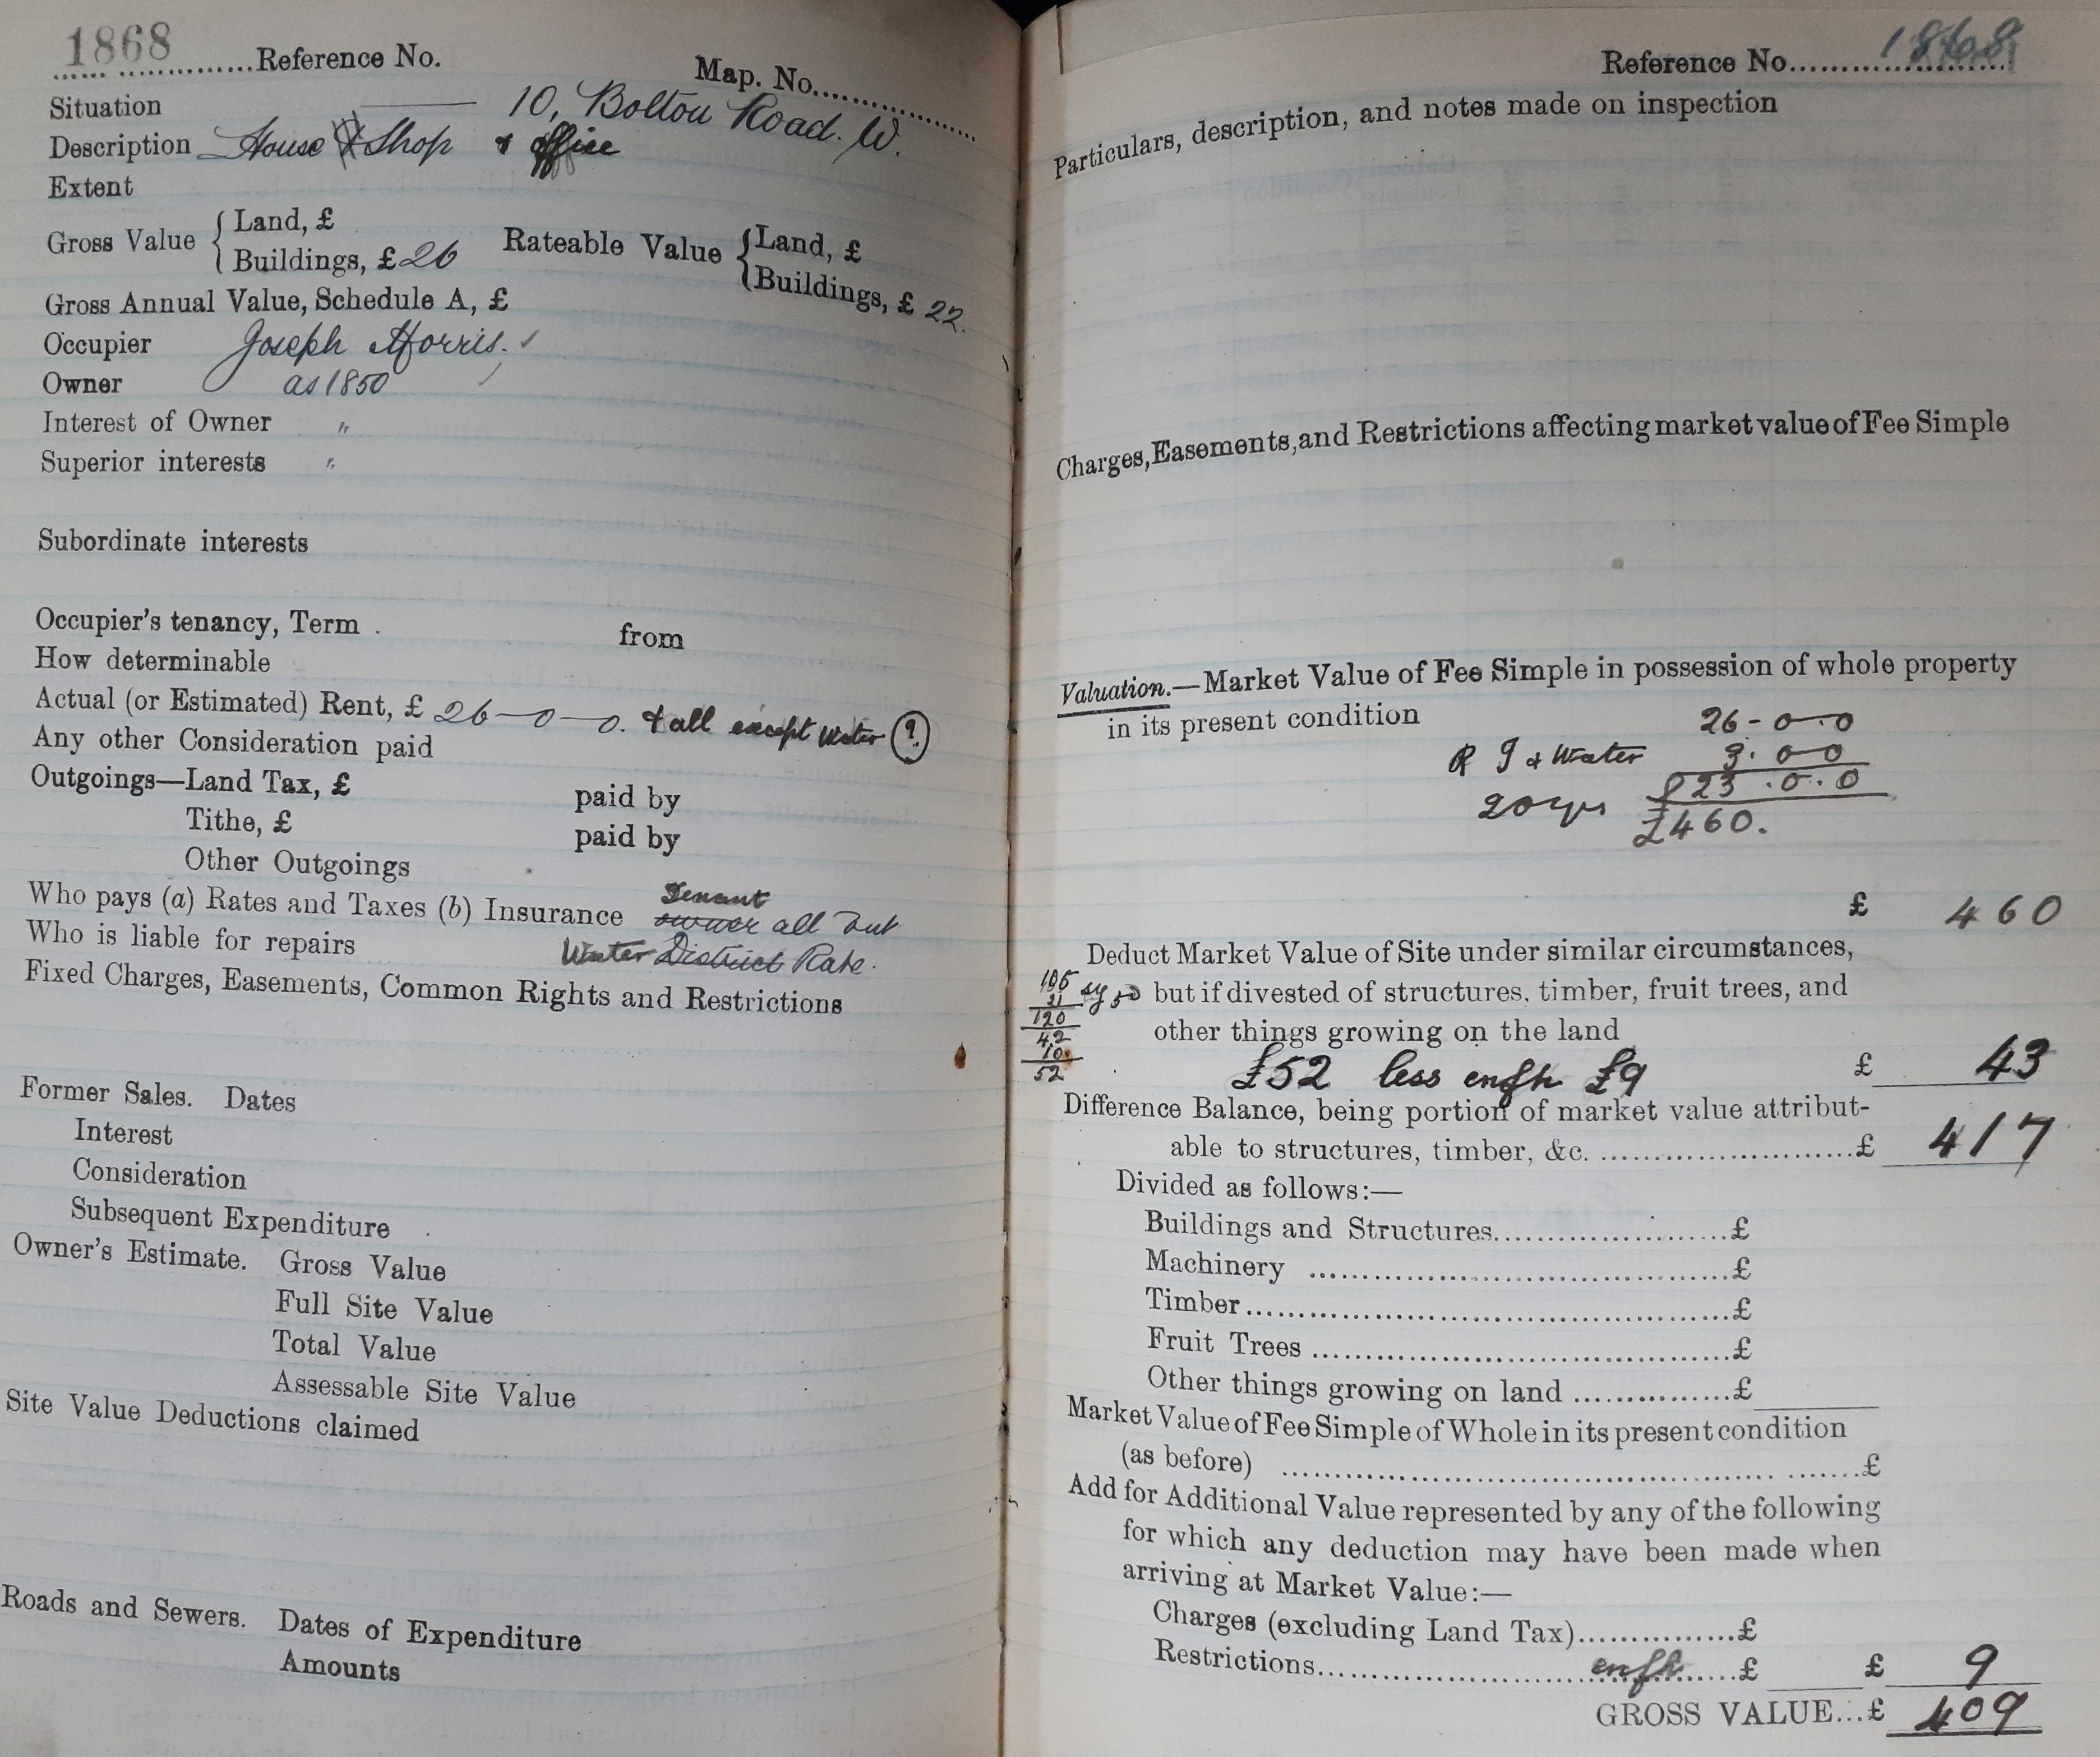 1868 Reference No.
Map. No.
Situation 10, Bolton Road. W.
Description House & Shop & office
Extent
Gross Value { Land, £
Buildings, £ 26
Rateable Value { Land, £
Buildings, £ 22.
Gross Annual Value, Schedule A, £
Occupier Joseph Morris. ✓
Owner as 1850
Interest of Owner "
Superior interests "
Subordinate interests
Occupier's tenancy, Term from
How determinable
Actual (or Estimated) Rent, £ 26-0-0. & all except Water (?)
Any other Consideration paid
Outgoings—Land Tax, £ paid by
Tithe, £ paid by
Other Outgoings
Tenant
Who pays (a) Rates and Taxes (b) Insurance owner all but
Who is liable for repairs Water District Rate.
Fixed Charges, Easements, Common Rights and Restrictions
Former Sales. Dates
Interest
Consideration
Subsequent Expenditure
Owner's Estimate. Gross Value
Full Site Value
Total Value
Assessable Site Value
Site Value Deductions claimed
Roads and Sewers. Dates of Expenditure
Amounts
Reference No. 1868
Particulars, description, and notes made on inspection
Charges, Easements, and Restrictions affecting market value of Fee Simple
Valuation.—Market Value of Fee Simple in possession of whole property
in its present condition
26-0.0
& Water 3.0 0
23.0.0
20 yrs £460.
£ 460
Deduct Market Value of Site under similar circumstances,
but if divested of structures, timber, fruit trees, and
other things growing on the land
120
42
10
52
£52 less enfh £9 £ 43
Difference Balance, being portion of market value attribut-
able to structures, timber, &c. £ 417
Divided as follows:—
Buildings and Structures £
Machinery £
Timber £
Fruit Trees £
Other things growing on land £
Market Value of Fee Simple of Whole in its present condition
(as before) £
Add for Additional Value represented by any of the following
for which any deduction may have been made when
arriving at Market Value:—
Charges (excluding Land Tax) £
Restrictions enfh £ £ 9
GROSS VALUE...£ 409